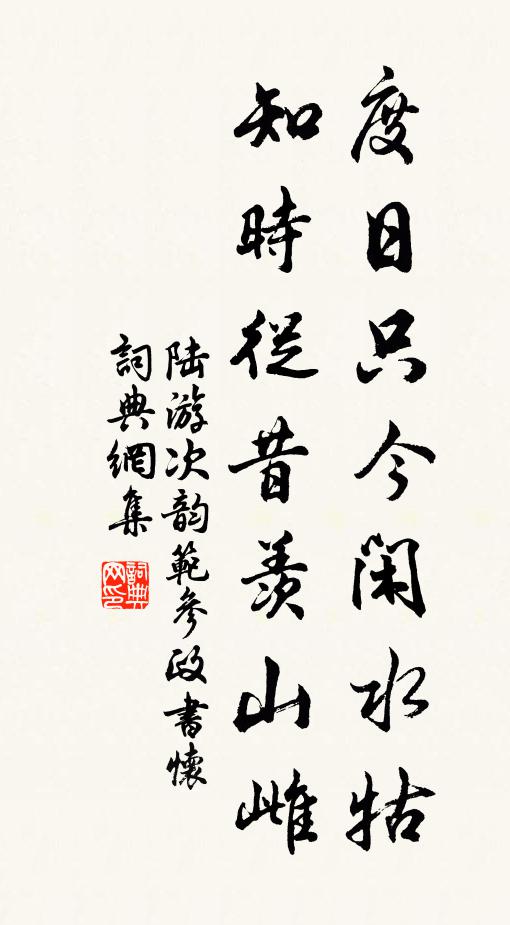 度日只今閑水牯
知時從昔羨山雌
陆游次韵範參政書懷
詞典網集
詞典网印